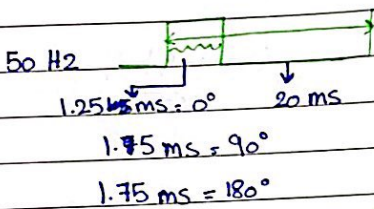 50 Hz
1.25 ms = 0° 20 ms
1.5 ms = 90°
1.75 ms = 180°